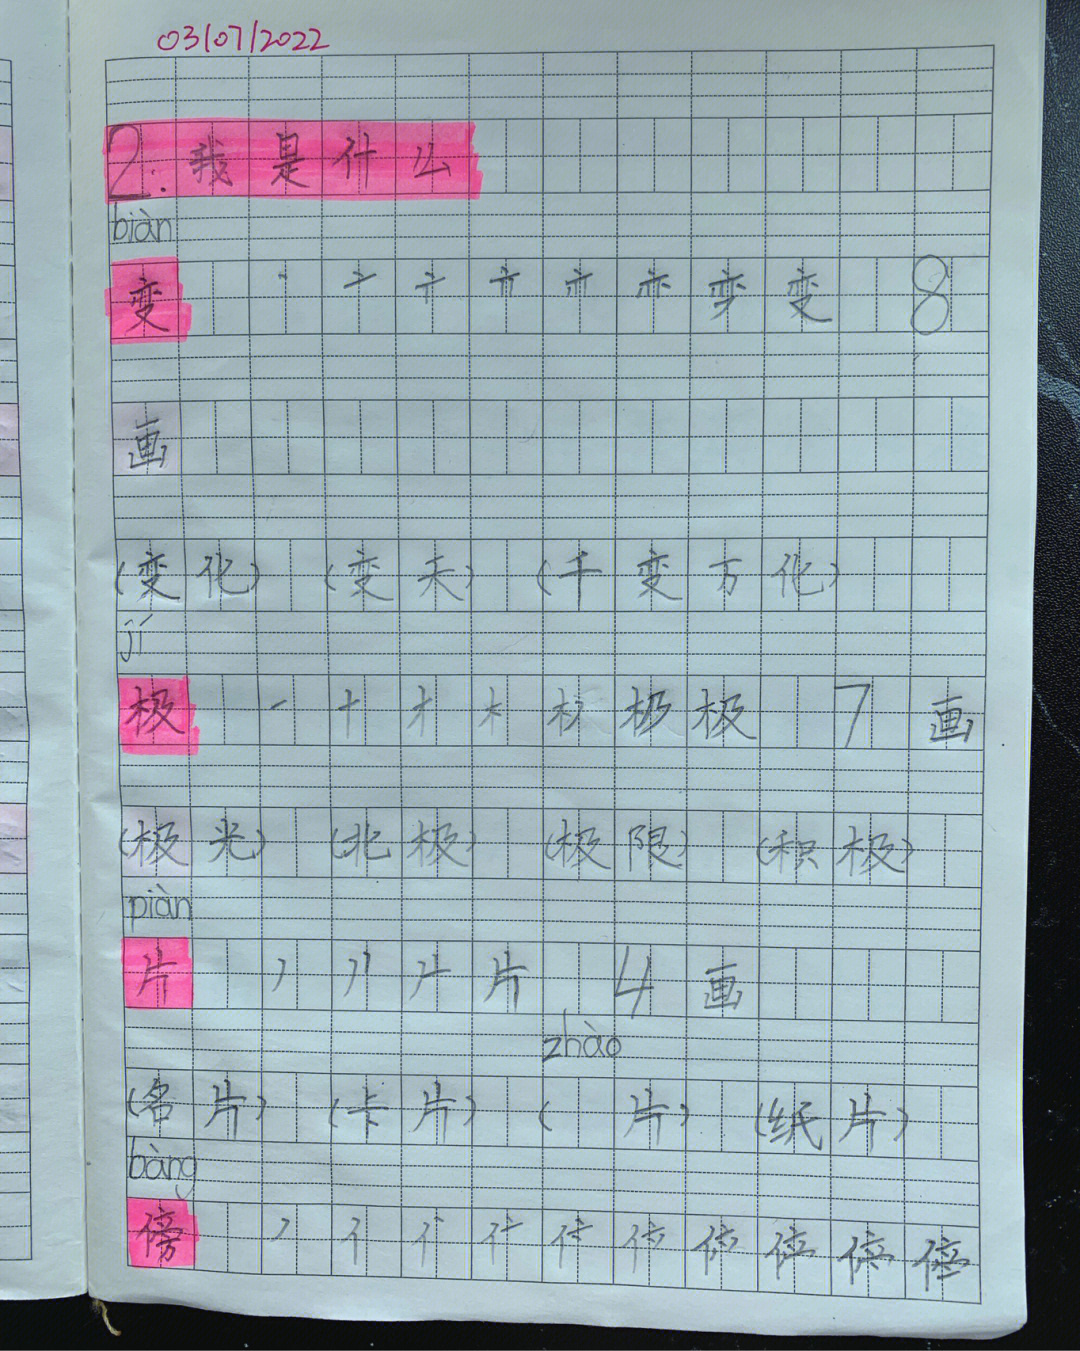 03/07/2022
2. 我是什么
biàn
变 丶 亠 变 8
画
(变化) (变天) (千变万化)
jí
极 一 十 才 木 极 7 画
(极光) (北极) (极限) (积极)
piàn
片 丿 片 4 画
zhào
(名片) (卡片) ( 片) (纸片)
bàng
傍 丿 亻